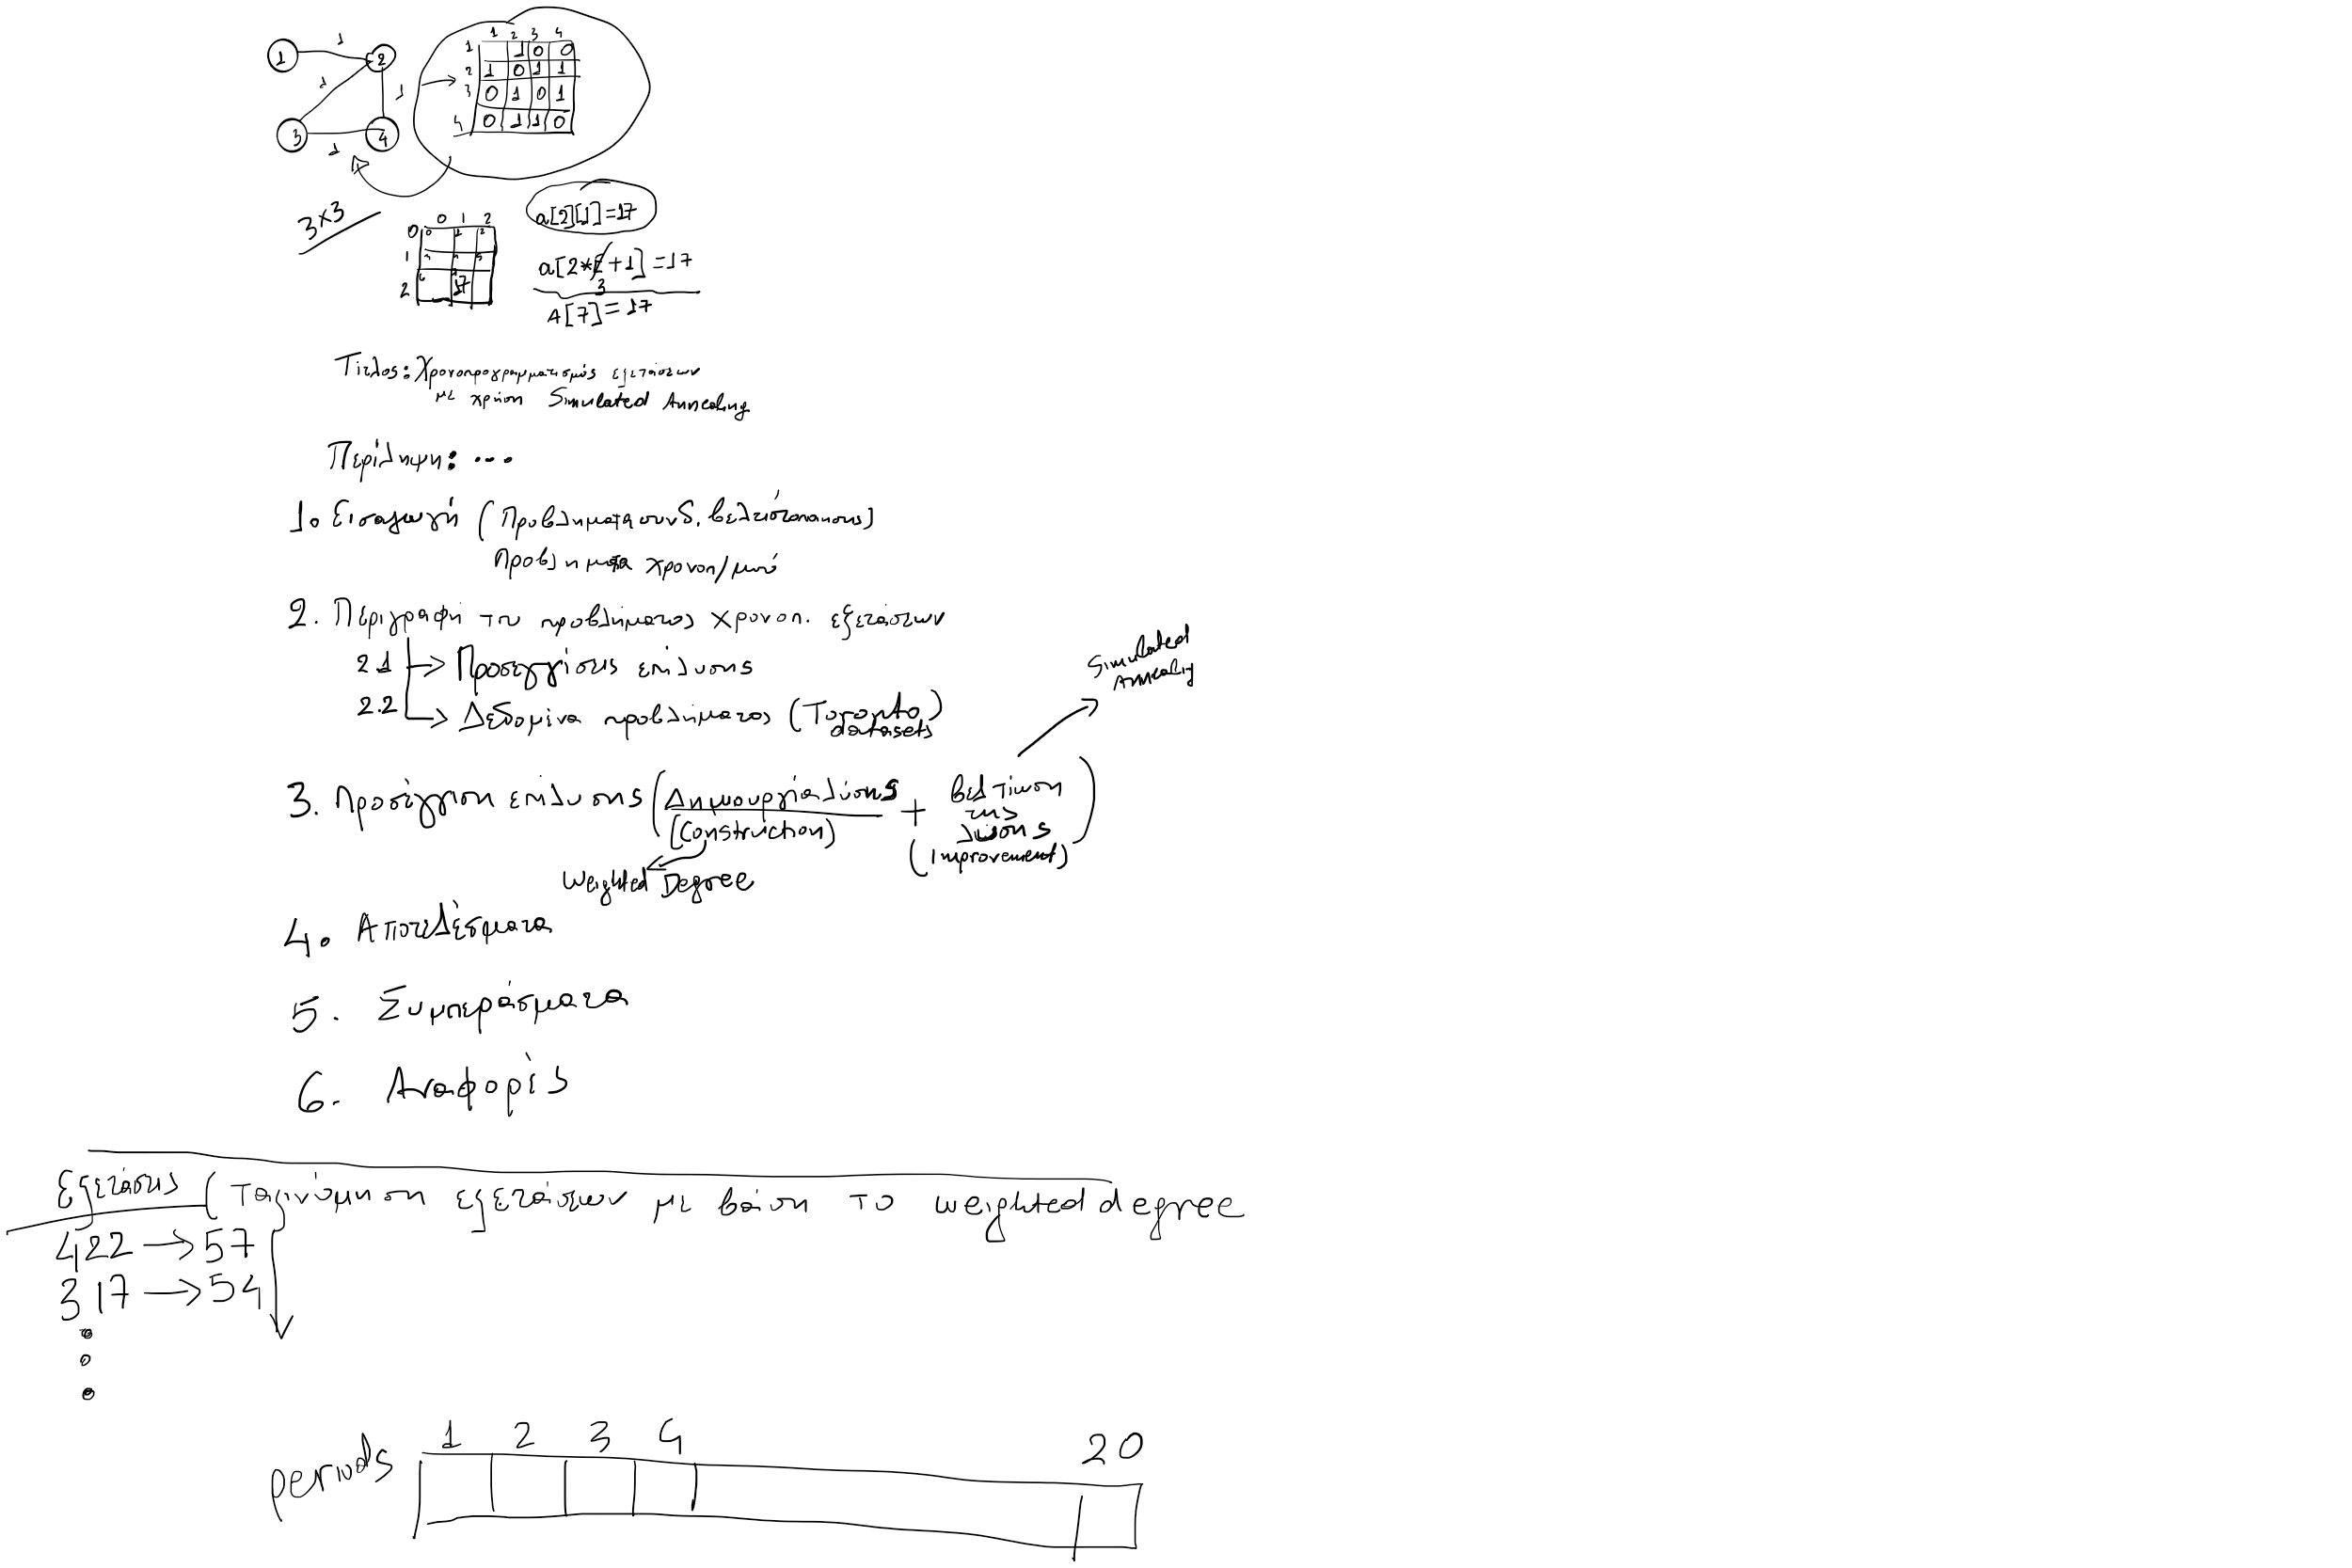 1 1 2
1 1
3 1 4
1 2 3 4
1 1 0 0
2 1 0 1 1
3 0 1 0 1
4 0 1 1 0
3x3
0 1 2
0 0 1 2
1 3 4 5
2 6 17
a[2][1]=17
a[2*2+1]=17
3
A[7]=17
Τίτλος: Χρονοπρογραμματισμός εξετάσεων
με χρήση Simulated Annealing
Περίληψη: ...
1. Εισαγωγή (Προβλήματα συνδ. βελτιστοποίησης)
Προβλήματα χρονοπ/μού
2. Περιγραφή του προβλήματος χρονοπ. εξετάσεων
2.1 → Προσεγγίσεις επίλυσης
2.2 → Δεδομένα προβλήματος (Toronto)
datasets
Simulated
Annealing
3. Προσέγγιση επίλυσης (Δημιουργία λύσης + Βελτίωση
της
λύσης)
(Construction)
(improvement)
Weighted Degree
4. Αποτελέσματα
5. Συμπεράσματα
6. Αναφορές
Εξετάσεις (Ταξινόμηση εξετάσεων με βάση το weighted degree
422 → 57
317 → 54
periods 1 2 3 4 20